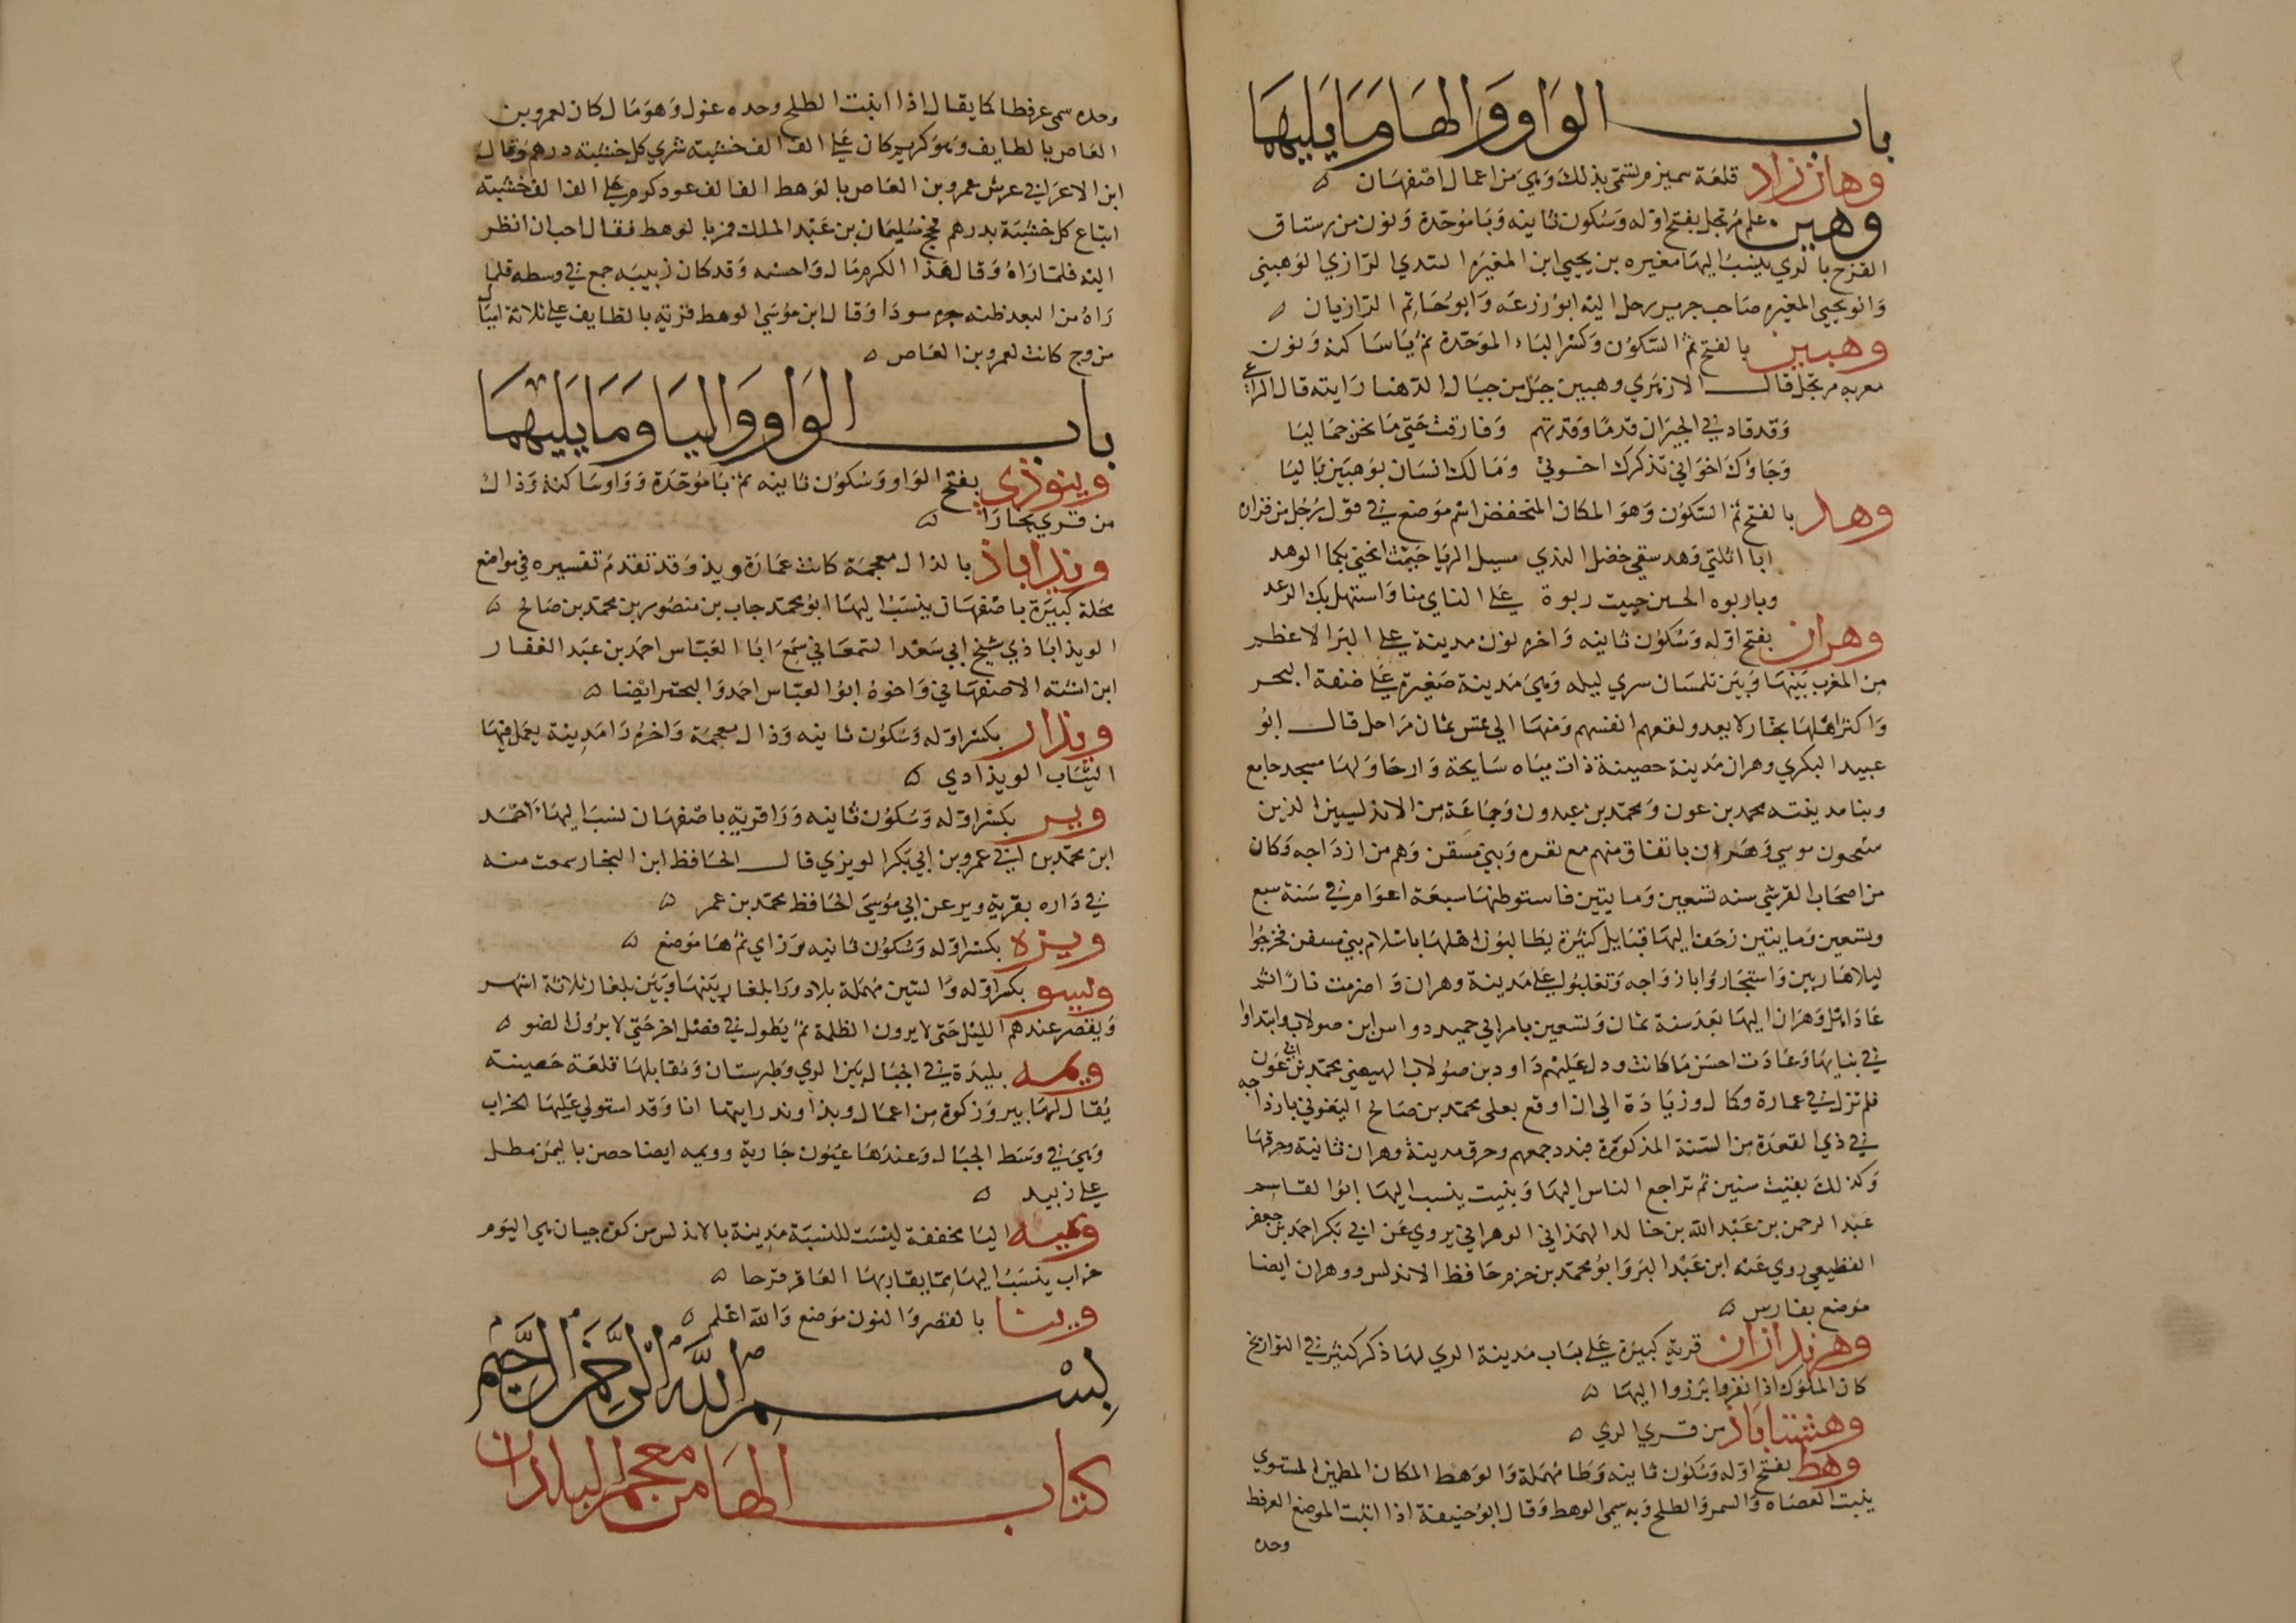 باب الواو والها وما يليها
وهان زاد قلعة سميرم تسمى بذلك وهي من اعمال اصفهان
وهبن علم مرتجل بفتح اوله وسكون ثانيه وبا موحدة ونون من رستاق
القزح بالري ينسب اليها مغيره بن يحيى ابن المغيره السدي الرازي الوهبني
وابو يحيى المغيره صاحب جرير رحل اليه ابو زرعه وابو حاتم الرازيان
وهبين بالفتح ثم السكون وكسر الباء الموحدة ثم يا ساكنه ونون
معربه مرتجل قال الازهري وهبين جبل من جبال الدهنا رايته قال الراعي
وقد قاد في الجيران قدما وقدتهم وفارقت حتى ما تحن جماليا
وجاؤك اخواني تذكرك اخوتي ومالك انسان بوهبين ماليا
وهد بالفتح ثم السكون وهو المكان المنخفض اسم موضع في قول رجل من فزاره
ايا اثلتي وهد سقى خضل الندى مسيل الربا حيث انحنى بكما الوهد
ويا ربوه الحسين حييت ربوة على الناي منا واستهل بك الرعد
وهران بفتح اوله وسكون ثانيه واخره نون مدينة على البر الاعظم
من المغرب بينها وبين تلمسان سري ليله وهي مدينة صغيرة على ضفة البحر
واكثر اهلها تجار لا يعدو نفعهم انفسهم ومنها الى عنس ثمان مراحل قال ابو
عبيد البكري وهران مدينة حصينة ذات مياه سايحة وارحا ولها مسجد جامع
وبنا مدينته محمد بن عون ومحمد بن عبدون وجماعة من الاندلسيين الذين
ينتجعون مرسى وهران باتفاق منهم مع نفره وبني مسقن وهم من ازداجه وكان
من اصحاب القرشي سنه تسعين ومايتين فاستوطنها سبعة اعوام في سنة سبع
وتسعين ومايتين زحف اليها قبايل كثيرة يطالبون اهلها باسلام بني مسقن فخرجوا
ليلا هاربين واستجاروا بازواجه وتغلبوا على مدينة وهران واضرمت نارا ثم
عاد اهل وهران اليها بعد سنة ثمان وتسعين بامر ابي حميد دواس ابن صولاب وابتداوا
في بنايها وعادت احسن ما كانت وولى عليهم داود بن صولاب اللهيصي محمد بن ابي عون
فلم تزل في عمارة وكمال وزيادة الى ان اوقع يعلى محمد بن صالح اليفوني بازداجه
في ذي القعدة من السنة المذكورة فبدد جمعهم وحرق مدينة وهران ثانية وحرقها
وكذلك بقيت سنين ثم تراجع الناس اليها وبنيت ينسب اليها ابو القاسم
عبد الرحمن بن عبد الله بن خالد الهمذاني الوهراني يروي عن ابي بكر احمد بن جعفر
القطيعي روى عنه ابن عبد البر وابو محمد بن حزم حافظ الاندلس ووهران ايضا
موضع بفارس
وهرندازان قرية كبيرة على باب مدينة الري لها ذكر كثير في التواريخ
كان الملوك اذا نفروا برزوا اليها
وهشتاباذ من قرى الري
وهط بفتح اوله وسكون ثانيه وطا مهملة والوهط المكان المطمئن المستوي
ينبت العضاه والسمر والطلح وبه سمى الوهط وقال ابو حنيفة اذا انبت الموضع العرفط
وحده
وحده سمى عرفطا كما يقال اذا انبت الطلح وحده غول وهو مال كان لعمرو بن
العاص بالطايف وهو كرم كان على الف الف خشبته شري كل خشبته درهم وقال
ابن الاعرابي عرش عمرو بن العاص بالوهط الف الف عود كرم على الف الف خشبته
ابتاع كل خشبة بدرهم فحج سليمان بن عبد الملك فمر بالوهط فقال احب ان انظر
اليه فلما راه وقال هذا اكرم مال واحسنه وقد كان زبيبه جمع في وسطه فلما
راه من البعد ظنه حره سودا وقال ابن موسى الوهط قرية بالطايف على ثلاثة اميال
من وج كانت لعمرو بن العاص
باب الواو واليا وما يليهما
ويبوذي بفتح الواو وسكون ثانيه ثم با موحدة وواو ساكنة وذال
من قرى بخارا
ويذاباذ بالذال معجمة كانت عمارة ويذ وقد تقدم تفسيره في مواضع
محلة كبيرة باصفهان ينسب اليها ابو محمد جاب بن منصور بن محمد بن صالح
الويذاباذي شيخ ابي سعد السمعاني سمع ابا العباس احمد بن عبد الغفار
ابن اشته الاصفهاني واخوه ابو العباس احمد والبحتر ايضا
ويذار بكسر اوله وسكون ثانيه وذال معجمة واخره را مدينة يعمل فيها
الثياب الويذادي
وير بكسر اوله وسكون ثانيه ورا قرية باصفهان نسب اليها احمد
ابن محمد بن ابي عمرو بن ابي بكر الويزي قال الحافظ ابن النجار سمعت منه
في داره بقرية وير عن ابي موسى الحافظ محمد بن عمر
ويزه بكسر اوله وسكون ثانيه وزاي ثم ها موضع
ويسو بكسر اوله والسين مهملة بلاد ورا بلغار بينها وبين بلغار ثلاثة اشهر
ويقصر عندهم الليل حتى لا يرون الظلمة ثم يطول في فصل اخر حتى لا يرون الضو
ويمه بليدة في الجبال بين الري وطبرستان ومقابلها قلعة حصينة
يقال لها بيروزكوه من اعمال وبذاوند رايتها انا وقد استولى عليها الخراب
وهي في وسط الجبال وعندها عيون جارية وويمه ايضا حصن باليمن مطل
على زبيد
ويميه اليا مخففة ليست للنسبة مدينة بالاندلس من كوره جيان هي اليوم
خراب ينسب اليها مما يقاربها العاقر قرحا
وينا بالقصر والنون موضع والله اعلم
بسم الله الرحمن الرحيم
كتاب الها من معجم البلدان